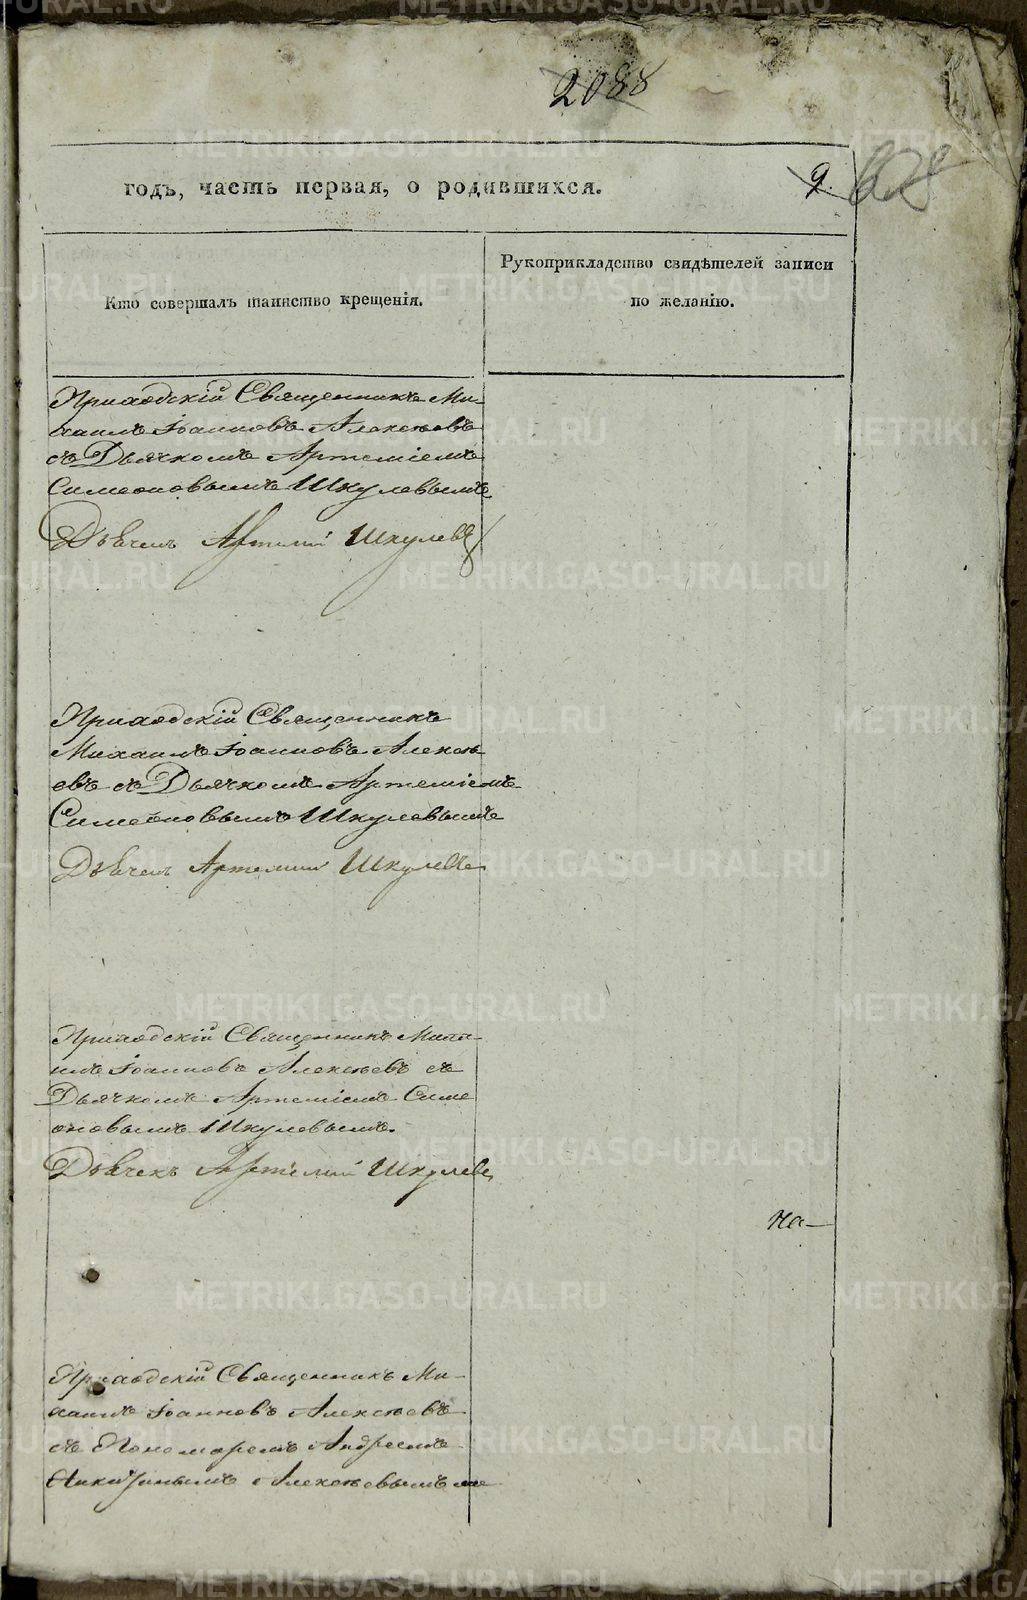 2088
годъ, часть первая, о родившихся.
9.
Кто совершалъ таинство крещенія.
Рукоприкладство свидѣтелей записи
по желанію.
Приходскій Священникъ Ми-
хаилъ Іоанновъ Алексѣевъ
съ Дьячкомъ Артеміемъ
Симеоновымъ Шкулевымъ
Артемий Шкулевъ
Приходскій Священникъ
Михаилъ Іоанновъ Алексѣ-
евъ съ Дьячкомъ Артеміемъ
Симеоновымъ Шкулевымъ
Артемий Шкулевъ
Приходскій Священникъ Миха-
илъ Іоанновъ Алексѣевъ съ
Дьячкомъ Артеміемъ Симе
оновымъ Шкулевымъ.
Артемий Шкулевъ
на-
Приходскій Священникъ Ми-
хаилъ Іоанновъ Алексѣевъ
съ Пономаремъ Андреемъ
Никитинымъ Алексѣевымъ же
METRIKI.GASO-URAL.RU